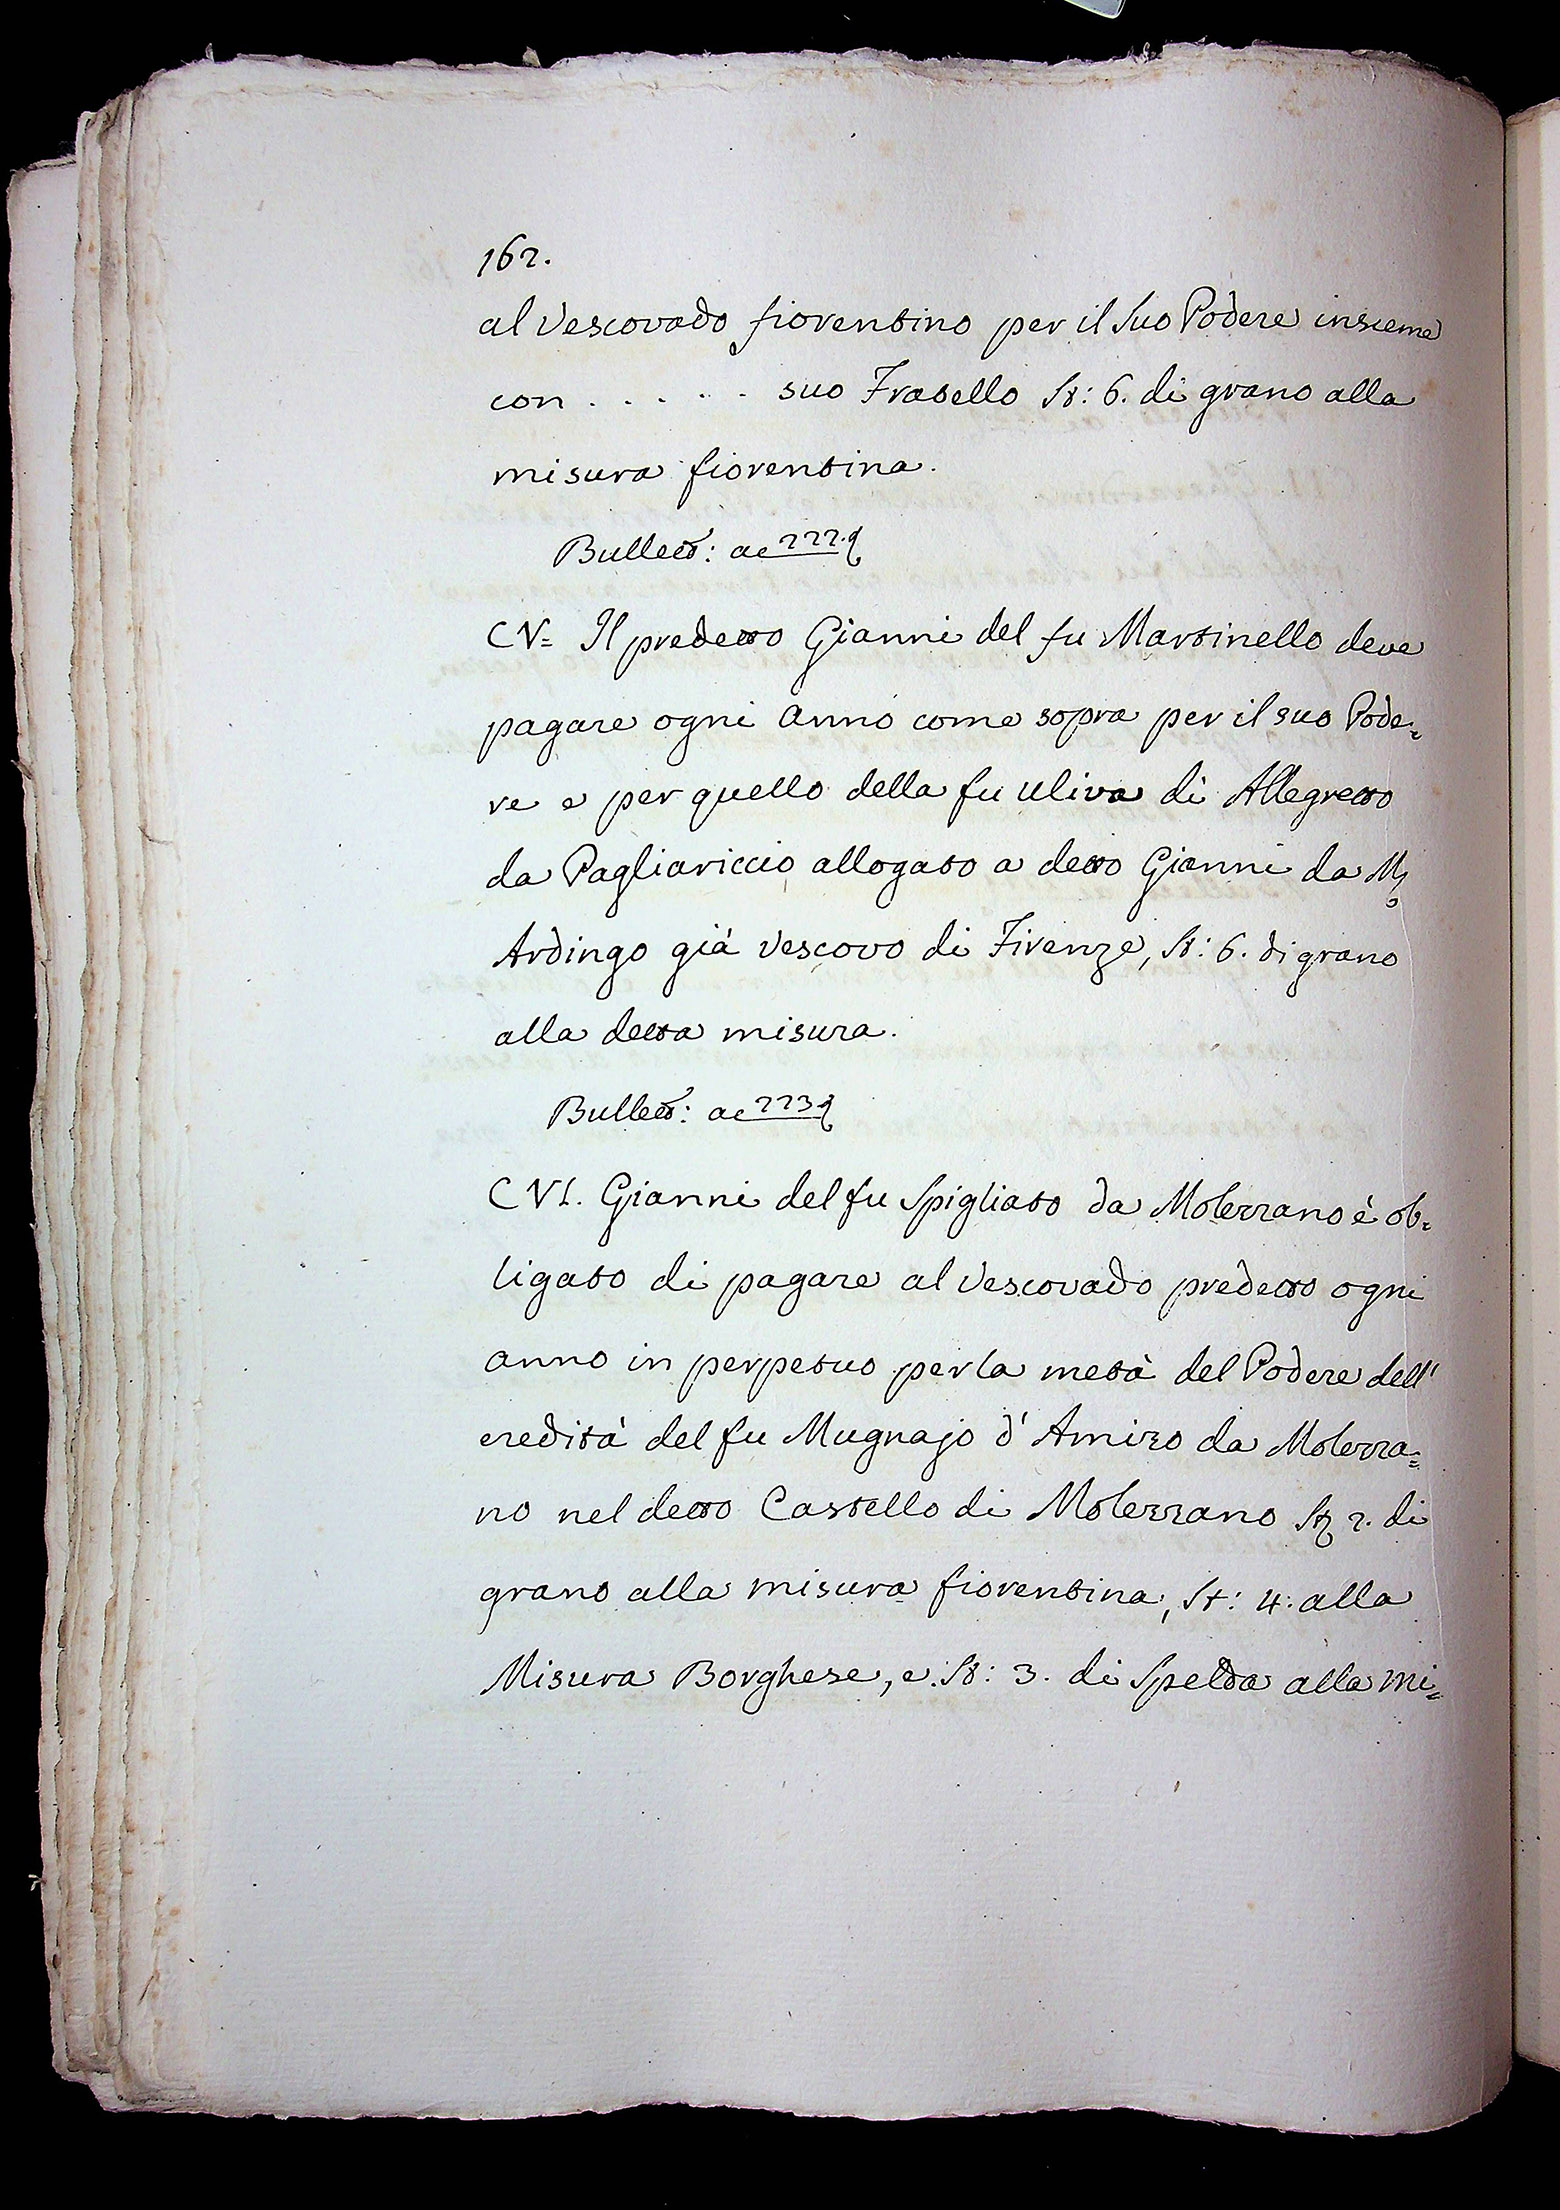 162.
al Vescovado fiorentino per il suo Podere insieme
con . . . . . suo Fratello St: 6. di grano alla
misura fiorentina.
Bullett: ac 222.
CV= Il predetto Gianni del fu Martinello deve
pagare ogni anno come sopra per il suo Pode=
re e per quello della fu Uliva di Allegretto
da Pagliariccio allogato a detto Gianni da M
Ardingo già Vescovo di Firenze, St: 6. di grano
alla detta misura.
Bullett: ac 223
CVI. Gianni del fu Spigliato da Molezzano è ob=
ligato di pagare al Vescovado predetto ogni
anno in perpetuo per la metà del Podere dell'
eredità del fu Mugnajo d'Amizo da Molezza=
no nel detto Castello di Molezzano St 2. di
grano alla misura fiorentina, St: 4. alla
Misura Borghese, e St: 3. di Spelda alla mi=